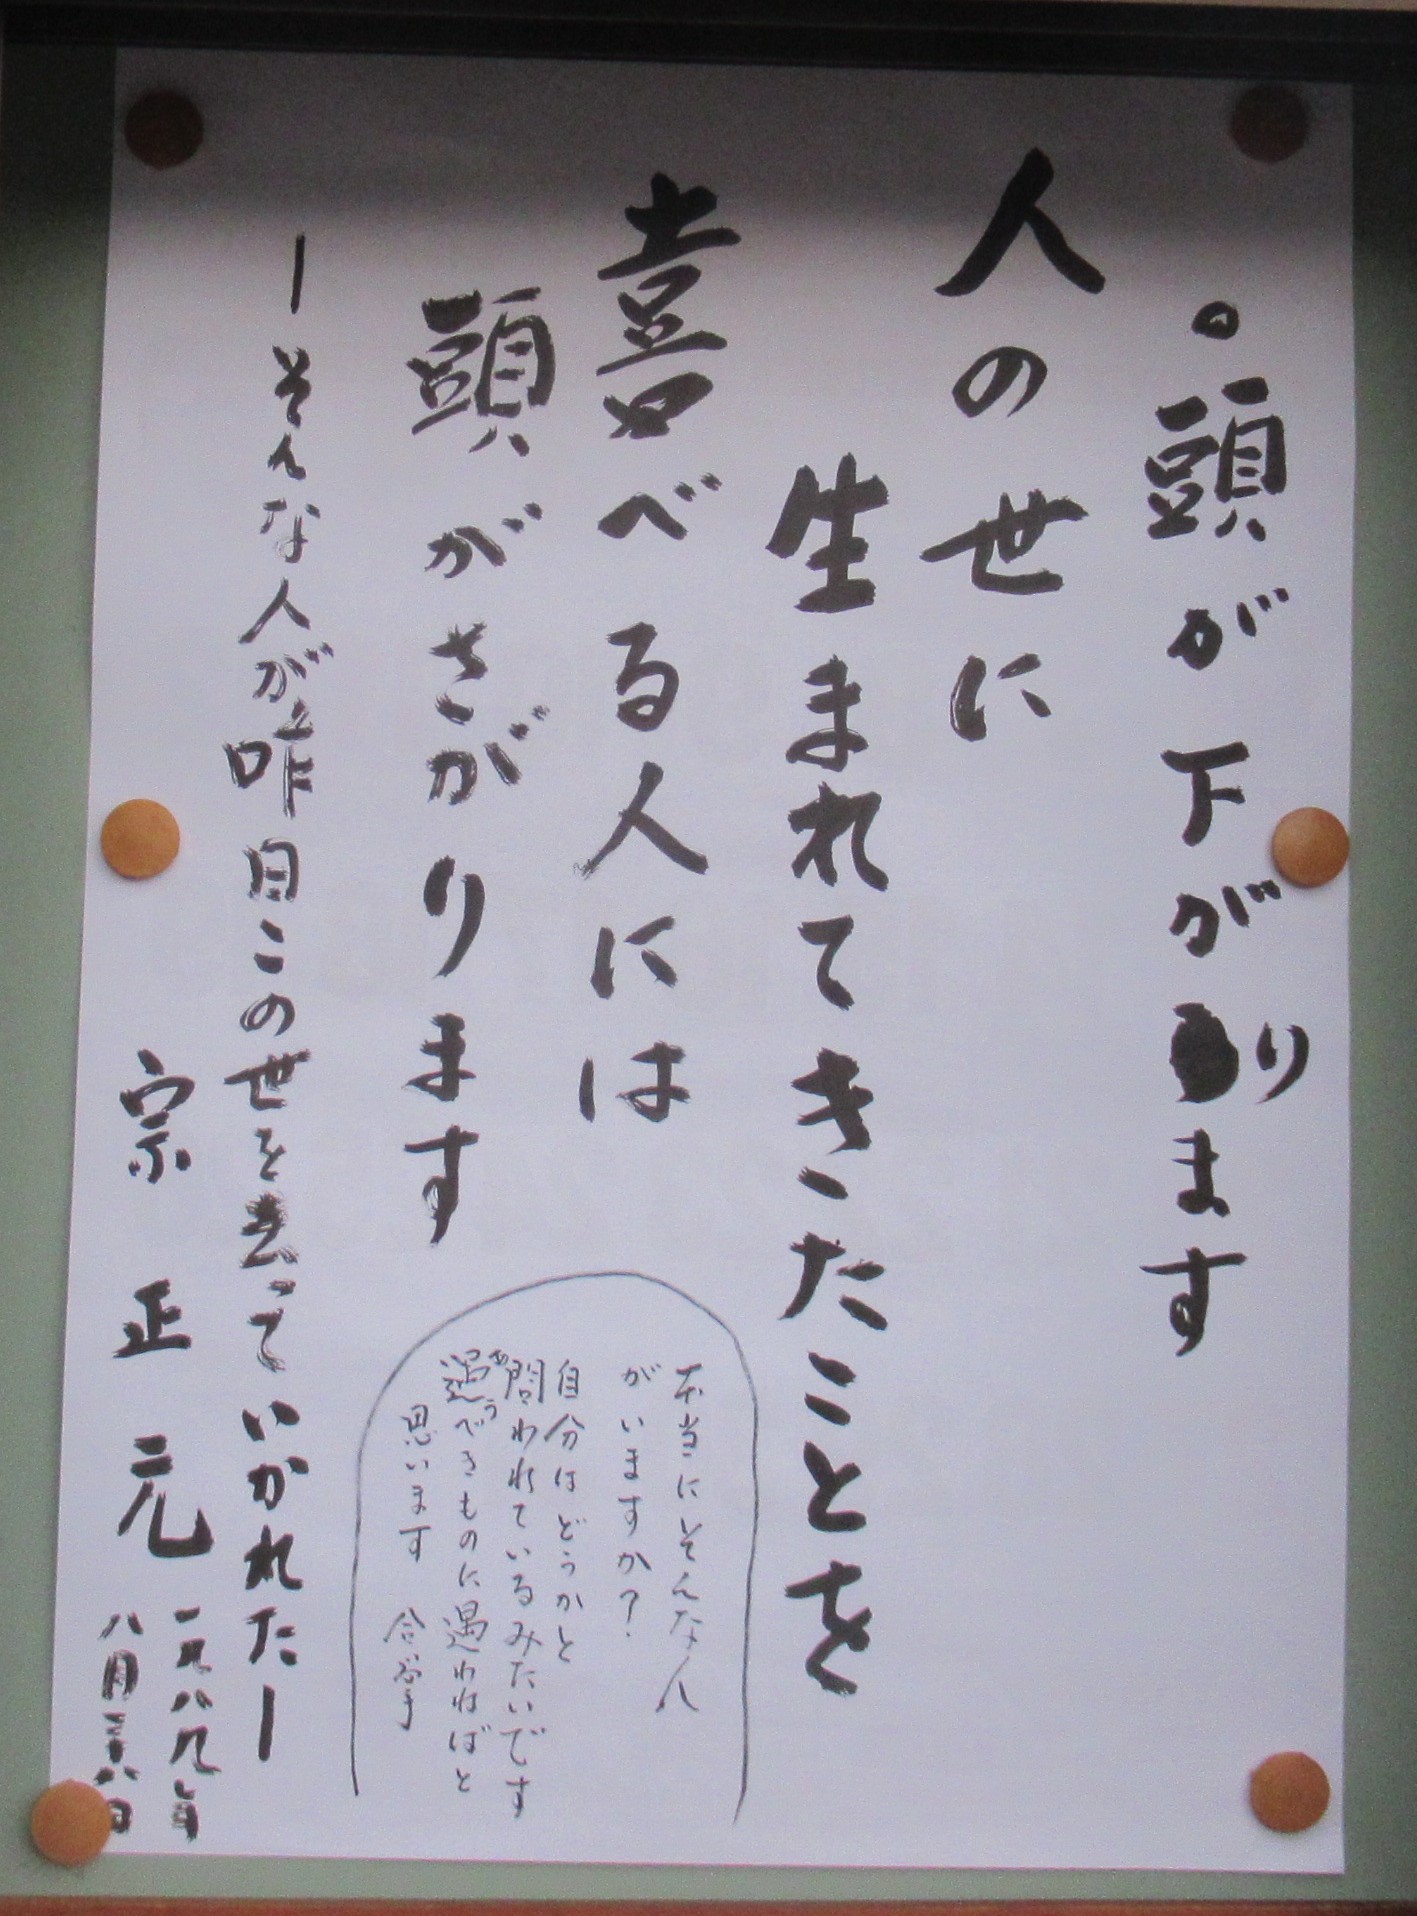 。頭が下がります
人の世に
生まれてきたことを
喜べる人には
頭がさがります
本当にそんな人
がいますか?
自分はどうかと
問われているみたいです
遇うべきものに遇わねばと
思います 合掌
―そんな人が昨日この世を去っていかれた―
宗正元
一九八九年
八月二十八日